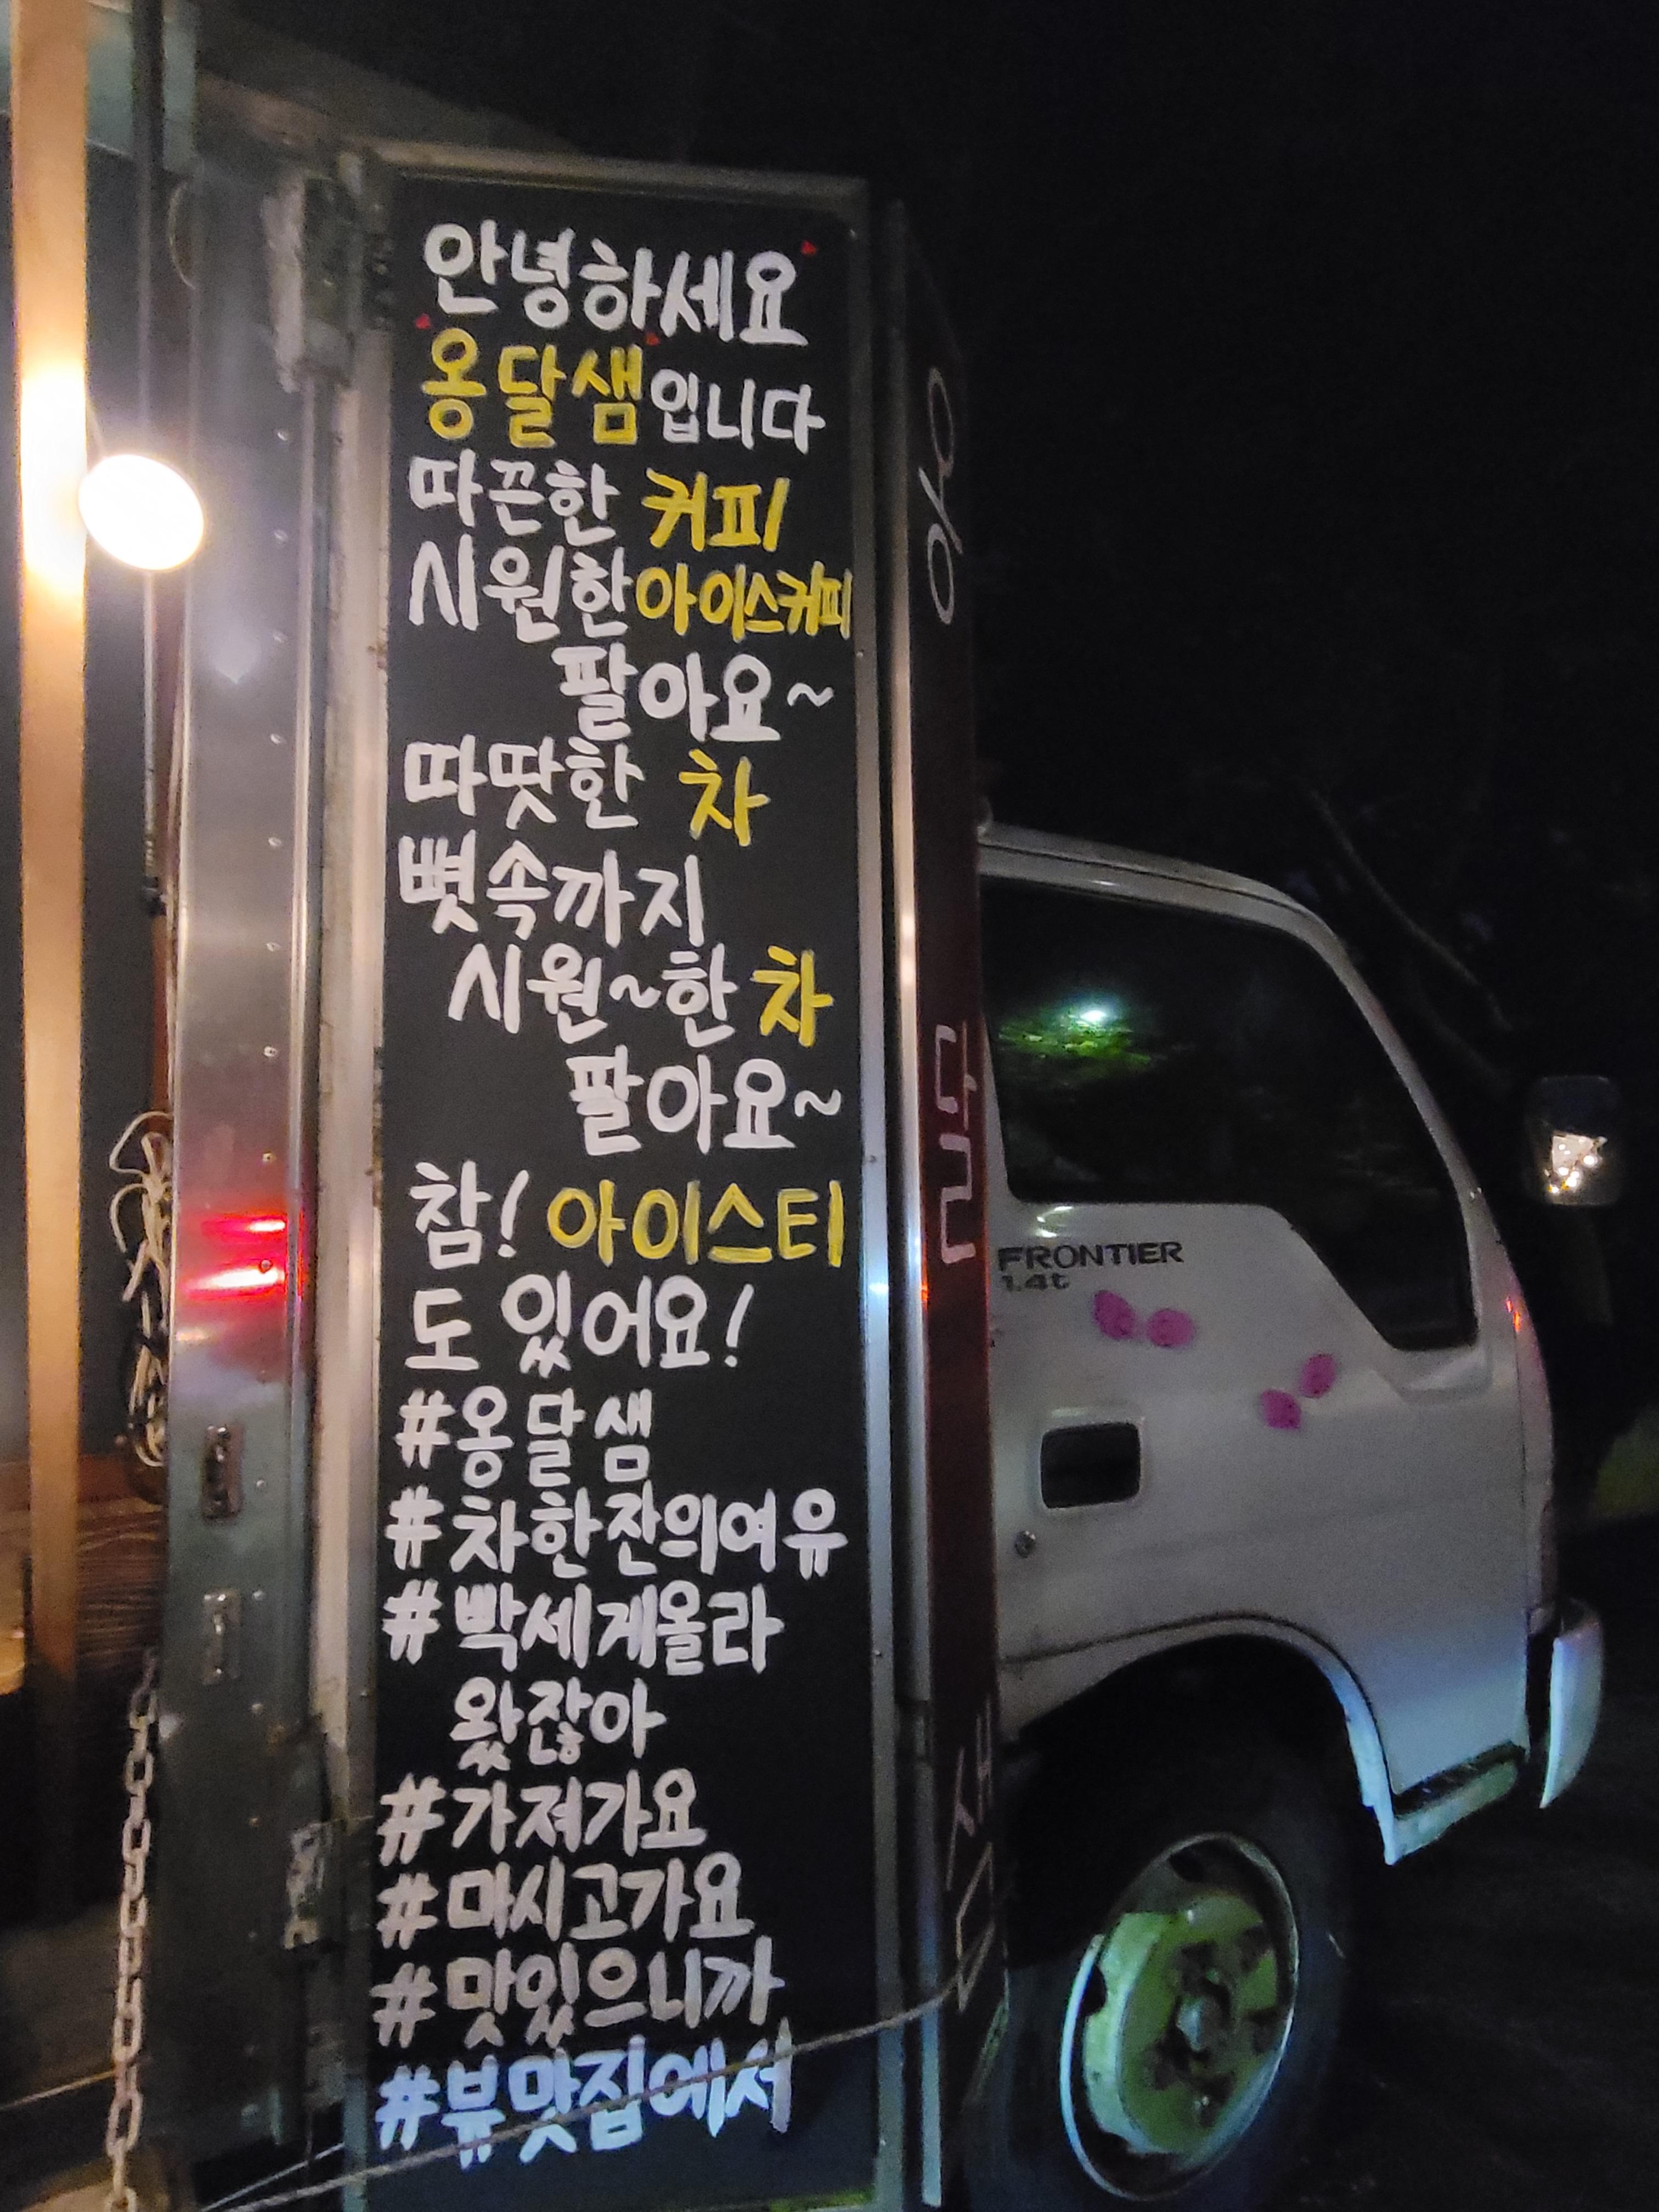 안녕하세요
옹달샘입니다
따끈한 커피
시원한 아이스커피
팔아요~
따땃한 차
뼛속까지
시원~한 차
팔아요~
참! 아이스티
도 있어요!
#옹달샘
#차한잔의여유
#빡세게올라
왔잖아
#가져가요
#마시고가요
#맛있으니까
#뷰맛집에서
FRONTIER
1.4t